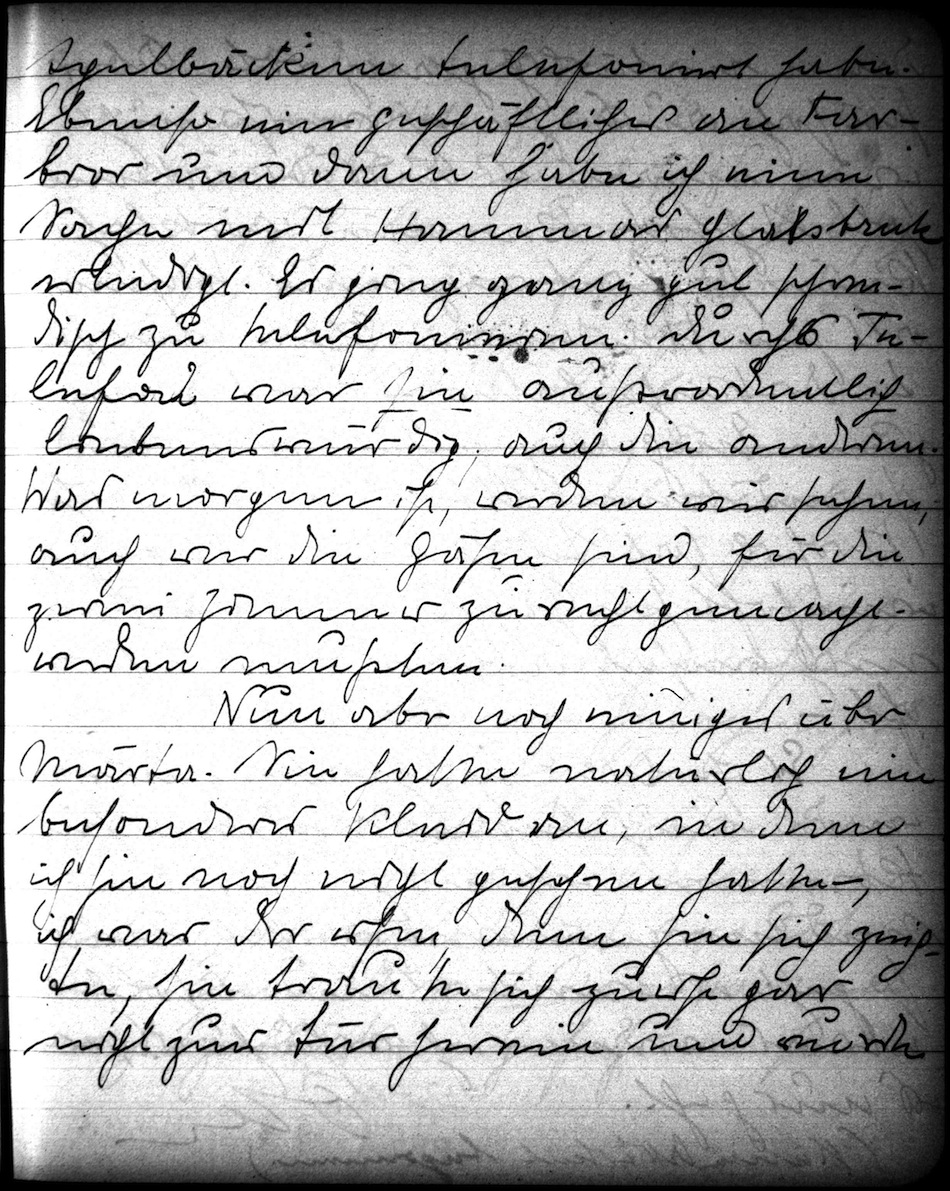 Spulbäcken telefoniert habe.
Ebenso ein geschäftliches an Far-
bror und dann habe ich eine
Sache mit Hammars Glasbruk
erledigt. Es ging ganz gut schwe-
disch zu telefonieren. Durchs Te-
lefon war sie außerordentlich
liebenswürdig, auch die anderen.
Was morgen ist, werden wir sehen,
auch wer die Gäste sind, für die
zwei Zimmer zurechtgemacht
werden mußten.
Nun aber noch einiges über
Märta. Sie hatte natürlich ein
besonderes Kleid an, in dem
ich sie noch nicht gesehen hatte,
ich war der erste, dem sie sich zeig-
te, sie traute sich zuerst gar
nicht zur Tür herein und wurde